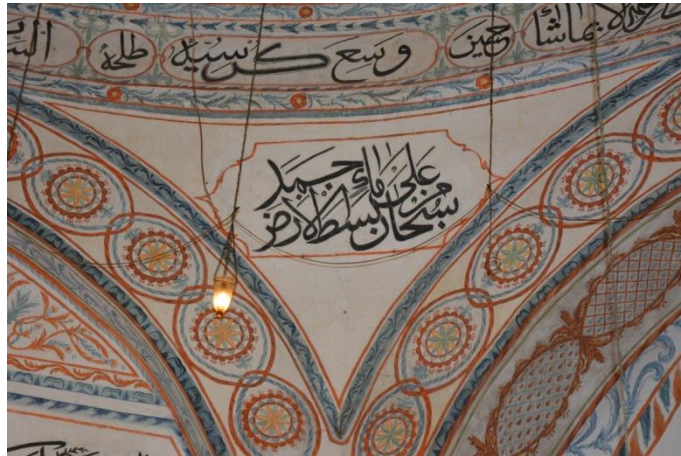 الا بماشاء
حسين
وسع كرسيه
طلحة
سبحان بسط الارض
على ماء جمد